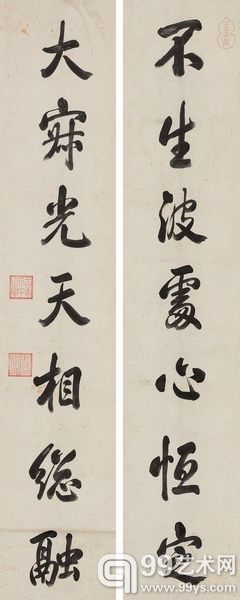 不生波處心恒定
大寂光天相總融
99艺术网
www.99ys.com